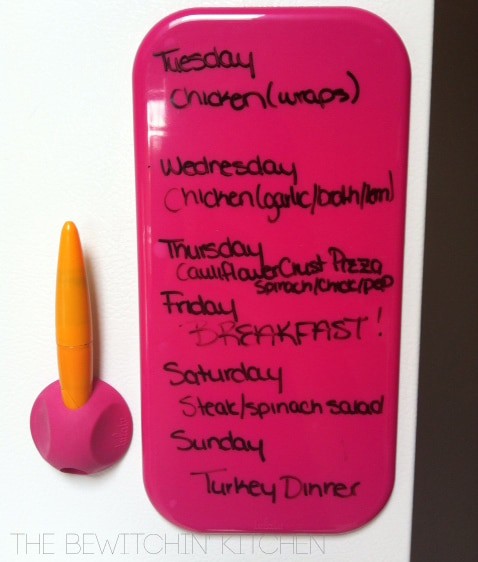 Tuesday
Chicken (wraps)
Wednesday
Chicken (garlic/broth/lem)
Thursday
Cauliflower Crust Pizza
Spinach/Chick/pep
Friday
BREAKFAST!
Saturday
Steak/spinach salad
Sunday
Turkey Dinner
THE BEWITCHIN' KITCHEN